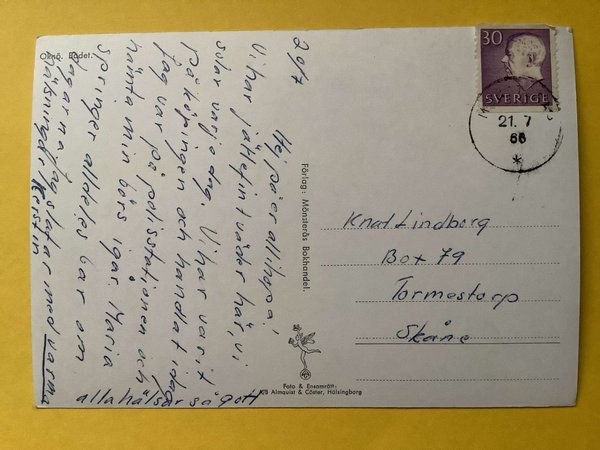 Oknö. Badet.
20/7 Hej på er allihopa!
Vi har jättefint väder här, vi
solar varje dag. Vi har varit
på köpingen och handlat idag
jag var på polisstationen och
hämta min börs igår. Maria
springer alldeles bar om
dagarna. Jag slutar med varma
hälsningar Kerstin
alla hälsar så gott
Förlag: Mönsterås Bokhandel.
30
SVERIGE
21. 7
66
Knut Lindborg
Box 79
Tormestorp
Skåne
Foto & Ensamrätt:
A/B Almquist & Cöster, Hälsingborg